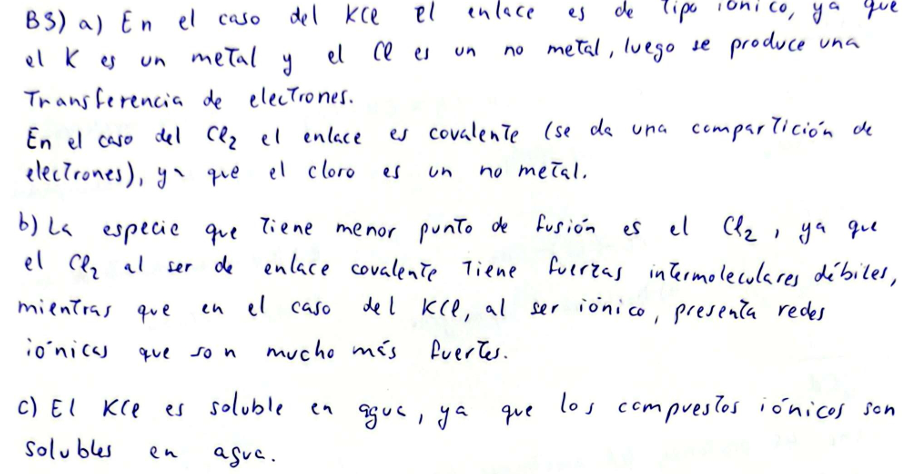 B3) a) En el caso del KCl el enlace es de tipo iónico, ya que
el K es un metal y el Cl es un no metal, luego se produce una
Transferencia de electrones.
En el caso del Cl2 el enlace es covalente (se da una compartición de
electrones), ya que el cloro es un no metal.
b) La especie que tiene menor punto de fusión es el Cl2, ya que
el Cl2 al ser de enlace covalente tiene fuerzas intermoleculares débiles,
mientras que en el caso del KCl, al ser iónico, presenta redes
iónicas que son mucho más fuertes.
c) El KCl es soluble en agua, ya que los compuestos iónicos son
solubles en agua.